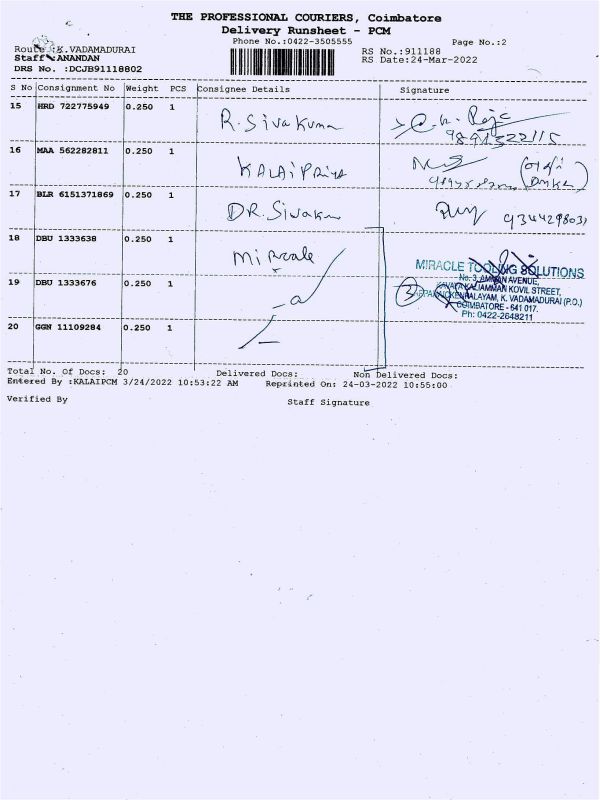 THE PROFESSIONAL COURIERS, Coimbatore
Delivery Runsheet - PCM
Phone No.:0422-3505555 Page No.:2
Route :K.VADAMADURAI RS No.:911188
Staff :ANANDAN RS Date:24-Mar-2022
DRS No. :DCJB91118802
S No Consignment No Weight PCS Consignee Details Signature
15 HRD 722775949 0.250 1 R.Sivakumar
16 MAA 562282811 0.250 1 KALAIPRIYA
17 BLR 6151371869 0.250 1 DR.Sivakum
18 DBU 1333638 0.250 1 Miracle
MIRACLE TOOLING SOLUTIONS
No. 3, AMMAN AVENUE,
19 DBU 1333676 0.250 1 3
KALIAMMAN KOVIL STREET,
K. VADAMADURAI (P.O.)
COIMBATORE - 641 017.
Ph: 0422-2648211
20 GGN 11109284 0.250 1
Total No. Of Docs: 20 Delivered Docs: Non Delivered Docs:
Entered By :KALAIPCM 3/24/2022 10:53:22 AM Reprinted On: 24-03-2022 10:55:00
Verified By Staff Signature